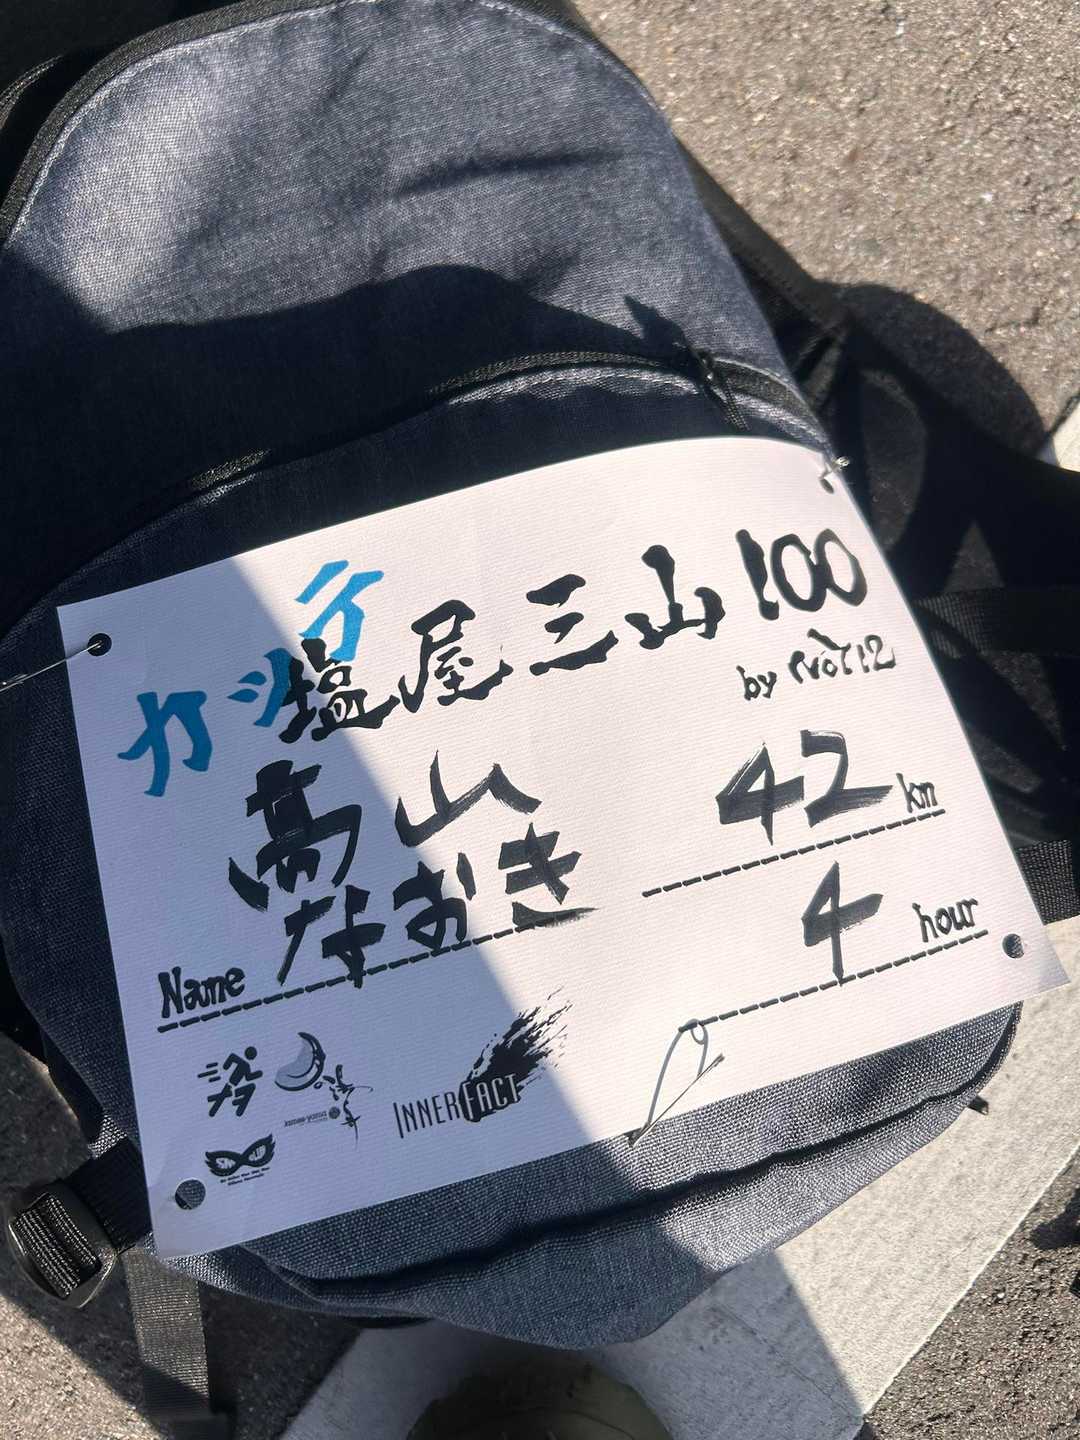 カッテ
塩屋三山100
by NOT12
高山
なおき
Name
42 km
4 hour
INNERFACT